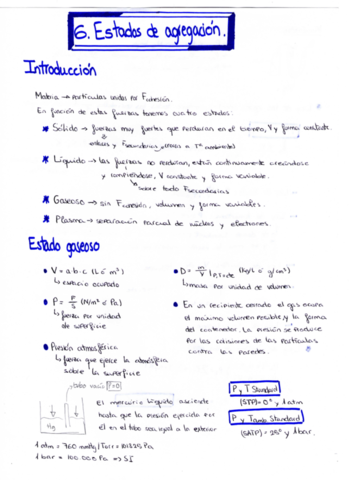 6. Estados de agregación.
Introducción
Materia → partículas unidas por Fcohesión.
En función de estas fuerzas tenemos cuatro estados:
* Sólido → fuerzas muy fuertes que perduran en el tiempo, V y forma constante.
* Líquido → las fuerzas no perduran, están continuamente creándose
y rompiéndose, V constante y forma variable.
↳ sobre todo Fsecundarias
* Gaseoso → sin Fcohesión, volumen y forma variables.
* Plasma → separación parcial de núcleos y electrones.
Estado gaseoso
• V = a·b·c (L ó m³)
↳ espacio ocupado
• P = F/S (N/m² ó Pa)
↳ fuerza por unidad
de superficie
• Presión atmosférica
↳ fuerza que ejerce la atmósfera
sobre la superficie
• D = m/V (kg/L ó g/cm³)
↳ masa por unidad de volumen.
• En un recipiente cerrado el gas ocupa
el máximo volumen posible y la forma
del contenedor. La presión se produce
por las colisiones de las partículas
contra las paredes.
tubo vacío P=0
Hg
El mercurio líquido asciende
hasta que la presión ejercida por
él en el tubo sea igual a la exterior
1 atm = 760 mmHg/Torr = 101325 Pa
1 bar = 100.000 Pa ⇒ SI
P y T Standard
(STP) = 0° y 1 atm
P y Tamb Standard
(SATP) = 25° y 1 bar.